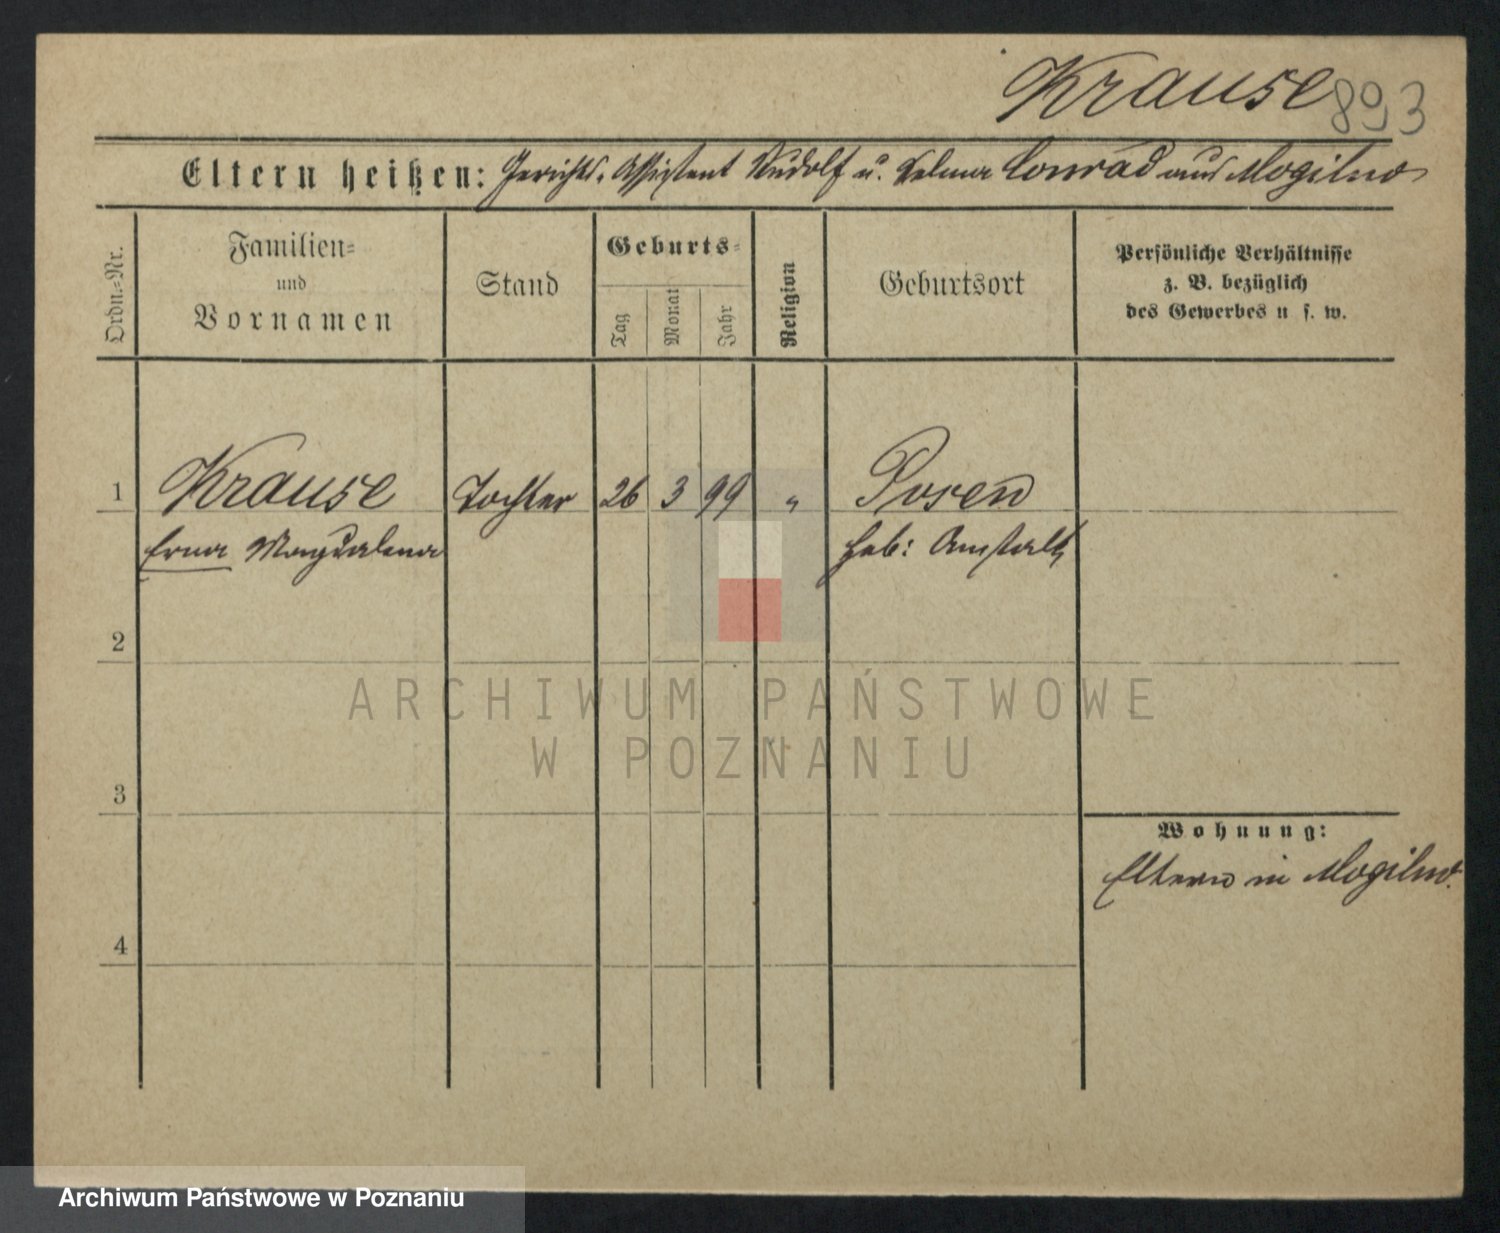 Krause 893
Eltern heißen: Gerichts-Assistent Rudolf u. Selma Conrad aus Mogilno
Ordn.-Nr.
Familien-
und
Vornamen
Stand
Geburts-
Tag
Monat
Jahr
Religion
Geburtsort
Persönliche Verhältnisse
z. B. bezüglich
des Gewerbes u s. w.
1 Krause Tochter 26 3 99 " Posen
Erna Magdalena Heb: Anstalt
2
3
4
Wohnung:
Eltern in Mogilno.
ARCHIWUM PAŃSTWOWE
W POZNANIU
Archiwum Państwowe w Poznaniu